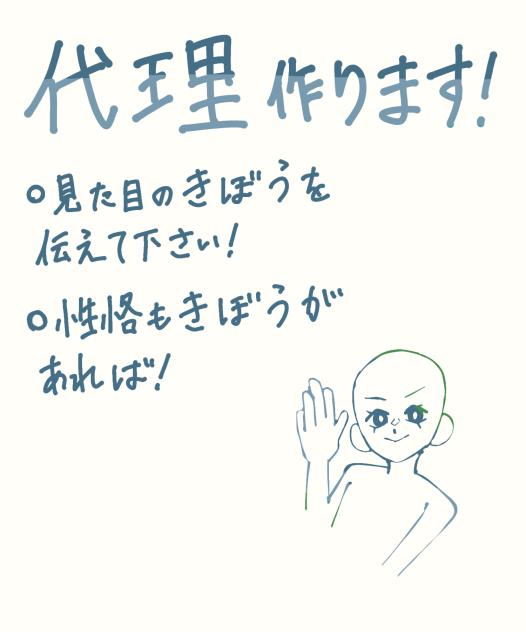 代理作ります!
○見た目のきぼうを
伝えて下さい!
○性格もきぼうが
あれば!